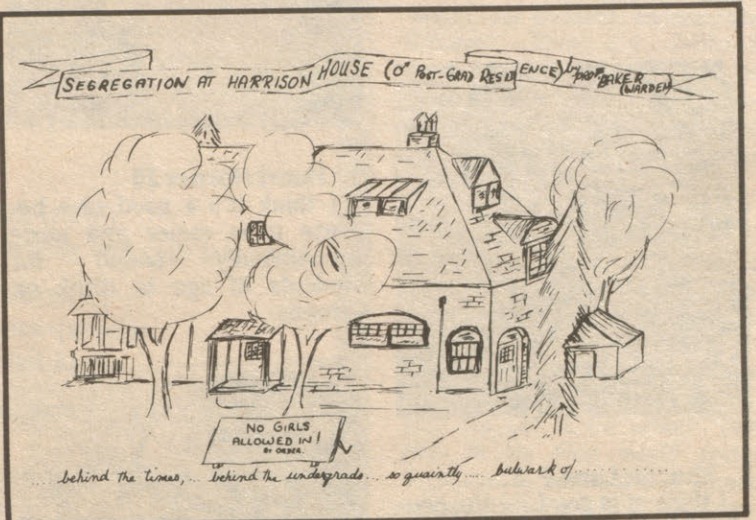 SEGREGATION AT HARRISON HOUSE (♂ POST-GRAD RESIDENCE) by PROF. BAKER
(WARDEN)
NO GIRLS
ALLOWED IN!
BY ORDER.
.. behind the times, ... behind the undergrads ... so quaintly ..... bulwark of ..............